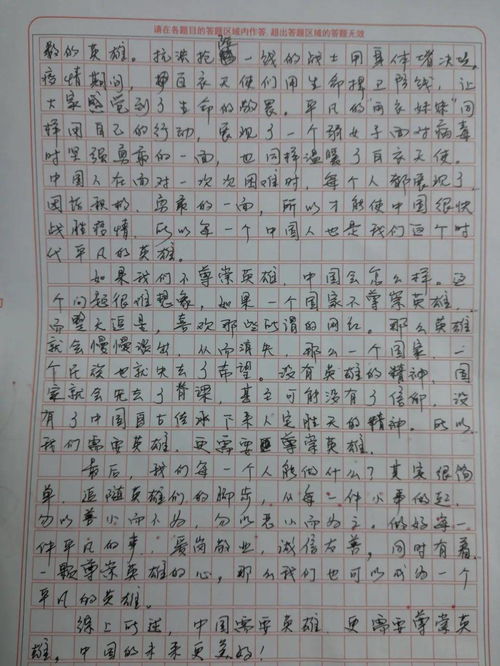 请在各题目的答题区域内作答,超出答题区域的答题无效
数的英雄。抗洪抢险一线的战士用身体堵决口,
疫情期间,白衣天使们用生命捍卫防线,让
大家感觉到了生命的敬畏。平凡的"雨衣妹妹"同
样用自己的行动,展现了一个弱女子面对病毒
时坚强勇敢的一面,也同样温暖了白衣天使。
中国人在面对一次次困难时,每个人都展现了
团结积极、勇敢的一面,所以才能使中国很快
战胜疫情,所以每一个中国人也是我们这个时
代平凡的英雄。
如果我们不尊崇英雄,中国会怎么样。这
个问题很难想象,如果一个国家不尊崇英雄,
而整天追星,喜欢那些所谓的网红。那么英雄
就会慢慢淡出,从而消失 那么一个国家、一
个民族也就失去了希望。没有英雄的精神,国
家就会失去了脊梁,甚至可能没有了信仰,没
有了中国自古传承下来人定胜天的精神。所以
我们需要英雄,更需要尊崇英雄。
最后,我们每一个人能做什么?其实很简
单,追随英雄们的脚步,从每一件小事做起,
勿以善小而不为,勿以恶小而为之。做好每一
件平凡的事,爱岗敬业,诚信友善,同时有着
一颗尊崇英雄的心。那么我们也可以成为一个
平凡的英雄。
综上所述,中国需要英雄,更需要尊崇英
雄。中国的未来更美好!